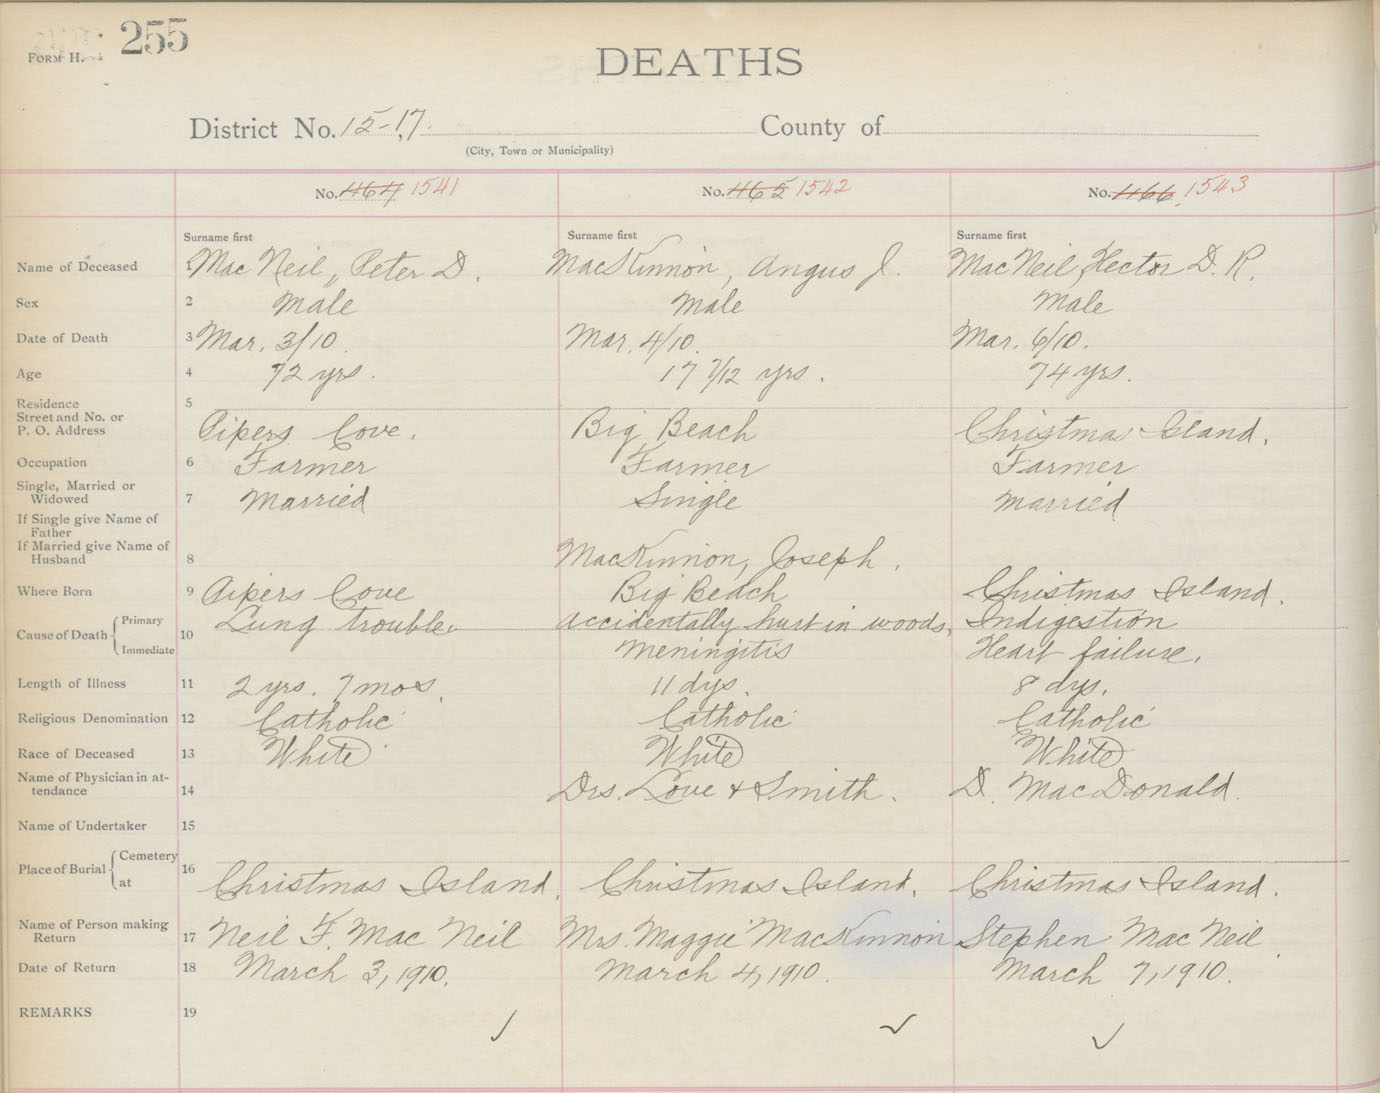 FORM H. 255
DEATHS
District No. 15-17. County of
(City, Town or Municipality)
No. 464 1541 No. 465 1542 No. 466 1543
Surname first Surname first Surname first
Name of Deceased 1 Mac Neil, Peter D. MacKinnon, Angus J. MacNeil, Hector D. R.
Sex 2 Male Male Male
Date of Death 3 Mar. 3/10 Mar. 4/10 Mar. 6/10.
Age 4 72 yrs. 17 7/12 yrs. 74 yrs.
Residence 5
Street and No. or
P. O. Address Pipers Cove. Big Beach Christmas Island.
Occupation 6 Farmer Farmer Farmer
Single, Married or
Widowed 7 Married Single Married
If Single give Name of
Father
If Married give Name of
Husband 8 MacKinnon, Joseph.
Where Born 9 Pipers Cove Big Beach Christmas Island.
Cause of Death Primary 10 Lung trouble. accidentally hurt in woods, Indigestion
Immediate Meningitis Heart failure.
Length of Illness 11 2 yrs. 7 mos. 11 dys. 8 dys.
Religious Denomination 12 Catholic Catholic Catholic
Race of Deceased 13 White White White
Name of Physician in at-
tendance 14 Drs. Love + Smith. D. MacDonald.
Name of Undertaker 15
Place of Burial Cemetery 16
at Christmas Island. Christmas Island. Christmas Island.
Name of Person making
Return 17 Neil F. Mac Neil Mrs. Maggie MacKinnon Stephen Mac Neil.
Date of Return 18 March 3, 1910. March 4, 1910. March 7, 1910.
REMARKS 19